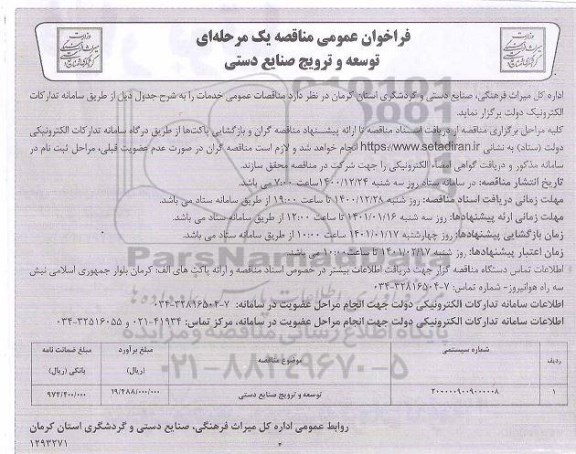 فراخوان عمومی مناقصه یک مرحله‌ای
توسعه و ترویج صنایع دستی
اداره کل میراث فرهنگی، صنایع دستی و گردشگری استان کرمان در نظر دارد مناقصات عمومی خدمات را به شرح جدول ذیل از طریق سامانه تدارکات
الکترونیک دولت برگزار نماید.
کلیه مراحل برگزاری مناقصه از دریافت اسناد مناقصه تا ارائه پیشنهاد مناقصه گران و بازگشایی پاکت‌ها از طریق درگاه سامانه تدارکات الکترونیکی
دولت (ستاد) به نشانی https://www.setadiran.ir انجام خواهد شد و لازم است مناقصه گران در صورت عدم عضویت قبلی، مراحل ثبت نام در
سامانه مذکور و دریافت گواهی امضاء الکترونیکی را جهت شرکت در مناقصه محقق سازند.
تاریخ انتشار مناقصه: در سامانه ستاد روز سه شنبه ۱۴۰۰/۱۲/۲۴ ساعت ۷:۰۰ می باشد.
مهلت زمانی دریافت اسناد مناقصه: روز شنبه ۱۴۰۰/۱۲/۲۸ تا ساعت ۱۹:۰۰ از طریق سامانه ستاد می باشد.
مهلت زمانی ارئه پیشنهادها: روز سه شنبه ۱۴۰۱/۰۱/۱۶ تا ساعت ۱۲:۰۰ از طریق سامانه ستاد می باشد.
زمان بازگشایی پیشنهادها: روز چهارشنبه ۱۴۰۱/۰۱/۱۷ ساعت ۱۰:۰۰ از طریق سامانه ستاد می باشد.
زمان اعتبار پیشنهادها: روز شنبه ۱۴۰۱/۰۲/۱۷ تا ساعت ۱۰:۰۰ می باشد.
اطلاعات تماس دستگاه مناقصه گزار جهت دریافت اطلاعات بیشتر در خصوص اسناد مناقصه و ارائه پاکت های الف: کرمان بلوار جمهوری اسلامی نبش
سه راه هوانیروز- شماره تماس: ۷-۳۲۸۱۶۵۰۴-۰۳۴
اطلاعات سامانه تدارکات الکترونیکی دولت جهت انجام مراحل عضویت در سامانه: ۷-۳۲۸۱۶۵۰۲-۰۳۴
اطلاعات سامانه تدارکات الکترونیکی دولت جهت انجام مراحل عضویت در سامانه، مرکز تماس: ۴۱۹۳۴-۰۲۱ و ۳۲۵۱۶۰۵۵-۰۳۴
ردیف شماره سیستمی موضوع مناقصه مبلغ برآورد (ریال) مبلغ ضمانت نامه بانکی (ریال)
۱ ۲۰۰۰۰۰۹۰۰۹۰۰۰۰۰۸ توسعه و ترویج صنایع دستی ۱۹/۴۸۸/۰۰۰/۰۰۰ ۹۷۴/۴۰۰/۰۰۰
روابط عمومی اداره کل میراث فرهنگی، صنایع دستی و گردشگری استان کرمان
۱۲۹۳۲۷۱
ParsNamadData
پایگاه اطلاع رسانی مناقصه و مزایده
۰۲۱-۸۸۳۴۹۶۷۰-۵